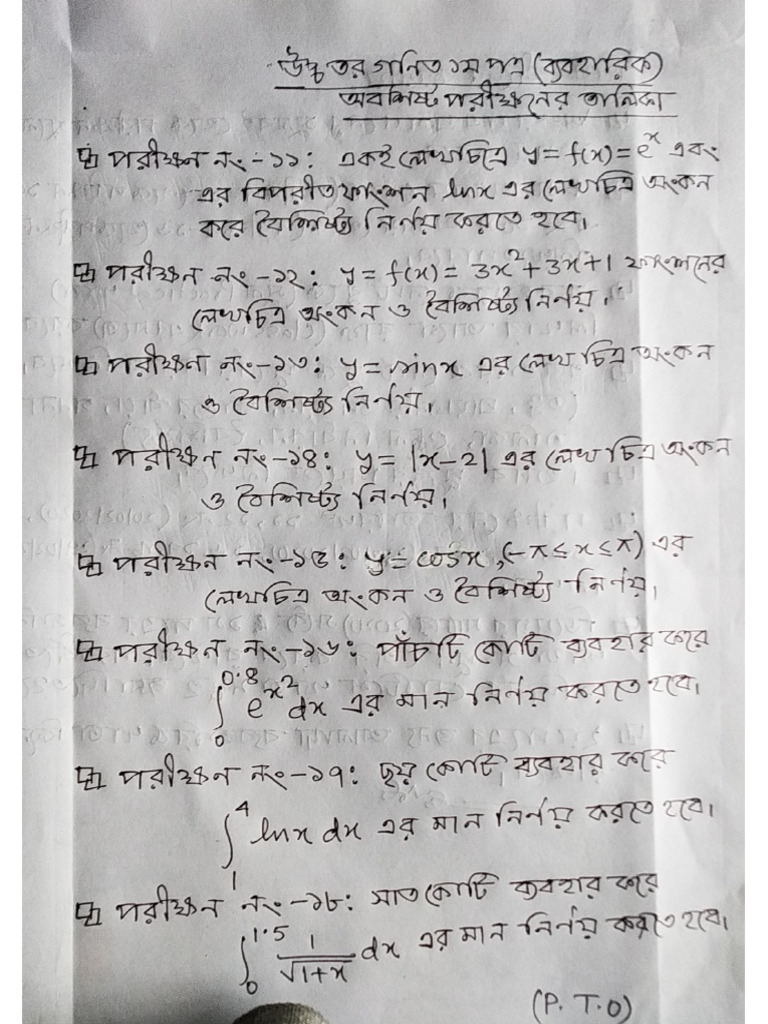 উচ্চতর গনিত ১ম পত্র (ব্যবহারিক)
অবশিষ্ট পরীক্ষনের তালিকা
পরীক্ষন নং-১১: একই লেখচিত্রে y = f(x) = e^x এবং
এর বিপরীত ফাংশন lnx এর লেখচিত্র অংকন
করে বৈশিষ্ট্য নির্ণয় করতে হবে।
পরীক্ষন নং-১২: y = f(x) = 3x²+3x+1 ফাংশনের
লেখচিত্র অংকন ও বৈশিষ্ট্য নির্ণয়।
পরীক্ষন নং-১৩: y = sinx এর লেখ চিত্র অংকন
ও বৈশিষ্ট্য নির্ণয়।
পরীক্ষন নং-১৪: y = |x-2| এর লেখ চিত্র অংকন
ও বৈশিষ্ট্য নির্ণয়।
পরীক্ষন নং-১৫: y = cosx, (-π ≤ x ≤ π) এর
লেখচিত্র অংকন ও বৈশিষ্ট্য নির্ণয়।
পরীক্ষন নং-১৬: পাঁচটি কোটি ব্যবহার করে
∫₀^0.8 e^x² dx এর মান নির্ণয় করতে হবে।
পরীক্ষন নং-১৭: ছয় কোটি ব্যবহার করে
∫₁^4 lnx dx এর মান নির্ণয় করতে হবে।
পরীক্ষন নং-১৮: সাত কোটি ব্যবহার করে
∫₀^1.5 1/√(1+x) dx এর মান নির্ণয় করতে হবে।
(P. T. O)